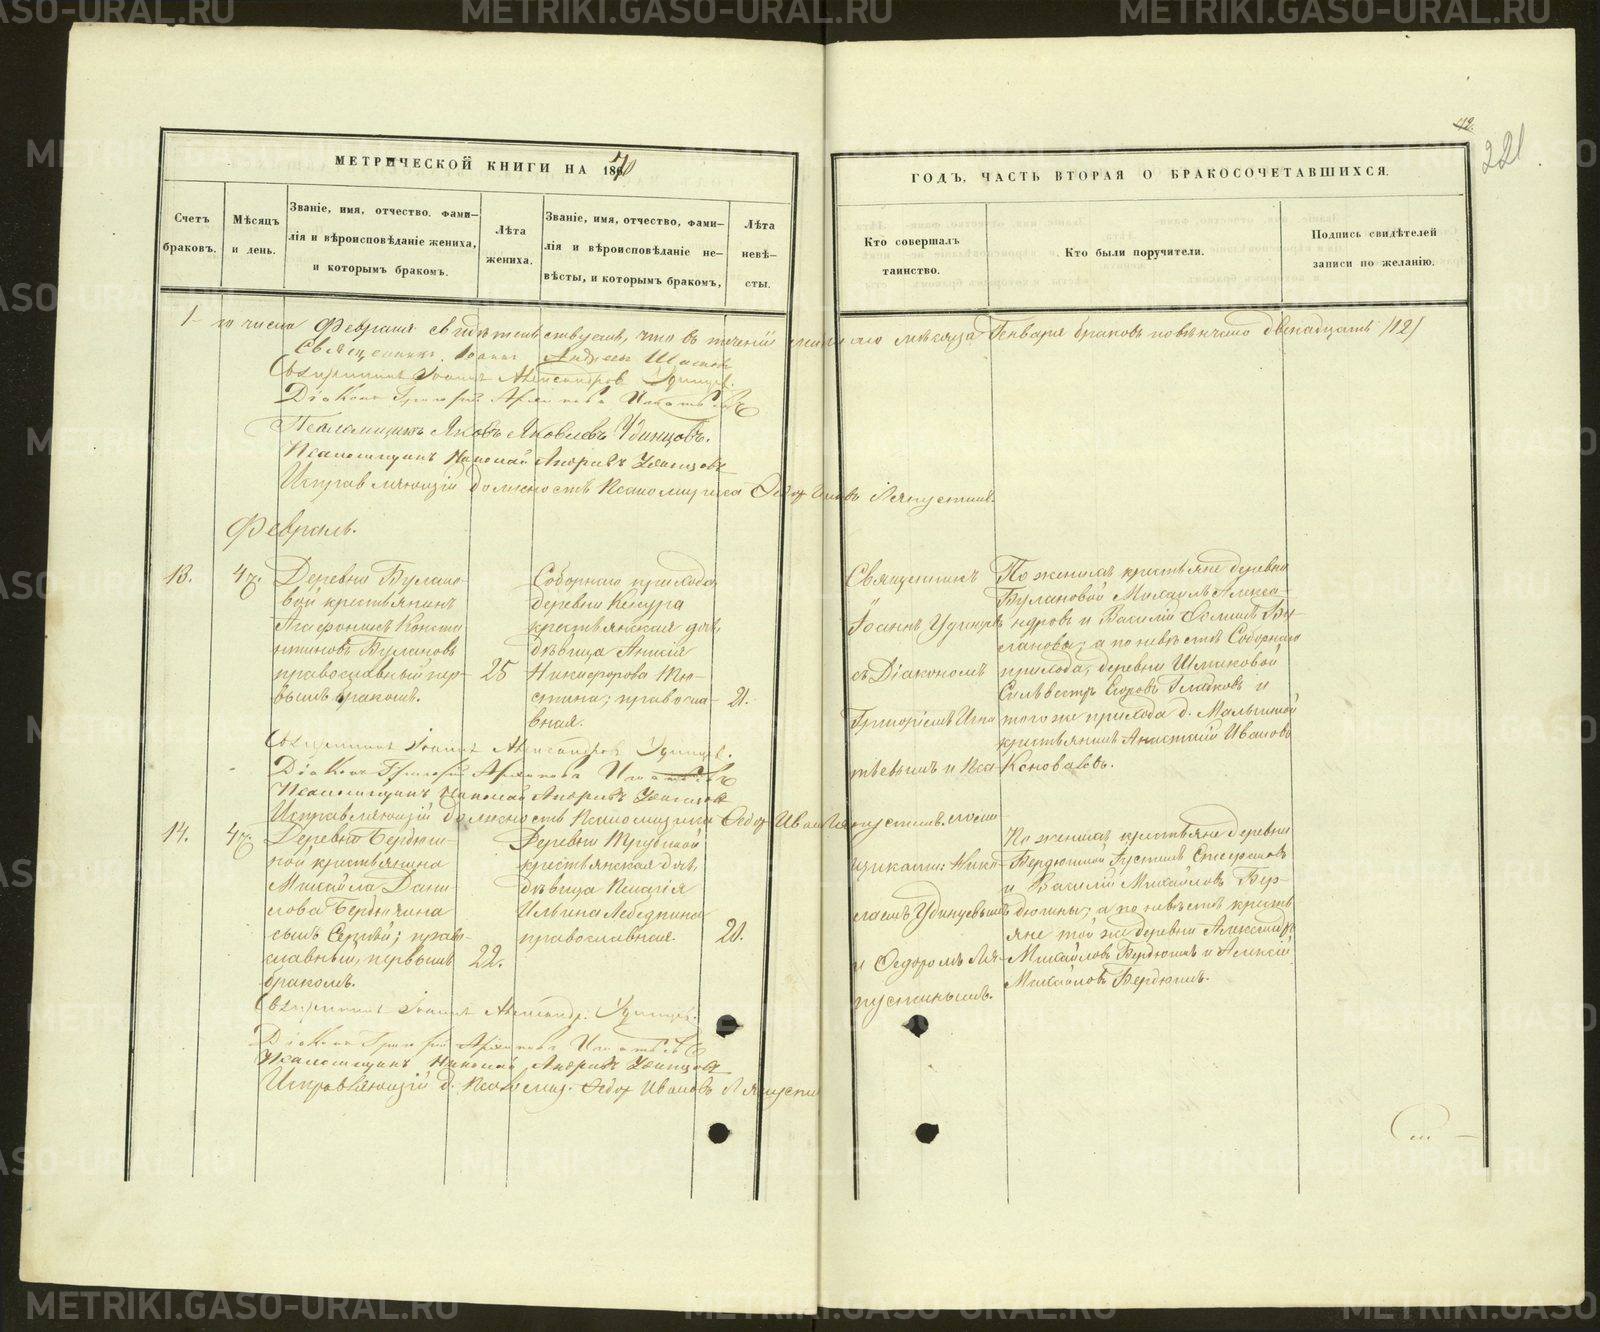 METRIKI.GASO-URAL.RU
42.
221
МЕТРИЧЕСКОЙ КНИГИ НА 1870
ГОДЪ, ЧАСТЬ ВТОРАЯ О БРАКОСОЧЕТАВШИХСЯ.
Счетъ браковъ.
Мѣсяцъ и день.
Званіе, имя, отчество, фами-
лія и вѣроисповѣданіе жениха,
и которымъ бракомъ.
Лѣта жениха.
Званіе, имя, отчество, фами-
лія и вѣроисповѣданіе не-
вѣсты, и которымъ бракомъ,
Лѣта невѣ-
сты.
Кто совершалъ
таинство.
Кто были поручители.
Подпись свидѣтелей
записи по желанію.
1-го числа Февраля свидѣтельствуемъ, что въ теченіи мѣсяца Генваря браковъ повѣнчано двенадцать /12/
Священникъ Іоаннъ
Священникъ Іоаннъ Александровъ Удинцев.
Діаконъ Григорій Игнатьевъ
Псаломщикъ Яковъ Яковлевъ Удинцовъ.
Псаломщикъ Николай Андреевъ Удинцовъ
Исправляющій должность Псаломщика Ѳедоръ Ивановъ Ляпустинъ
Февраль.
13.
4го.
Деревни Булано-
вой крестьянинъ
Агафоникъ Конста
нтиновъ Булановъ
православный пер-
вымъ бракомъ.
25
Соборнаго прихода
деревни Кекура
крестьянская доч,
дѣвица Анисія
Никифорова Тю-
стина; правосла-
вная.
21.
Священникъ
Іоаннъ Удинцевъ
съ Діакономъ
Григоріемъ Игна
тьевымъ и Пса-
ломщиками: Нико-
лаемъ Удинцевымъ
и Ѳедоромъ Ля-
пустинымъ.
По женихѣ крестьяне деревни
Булановой Михаилъ Алекса-
ндровъ и Василій Ѳоминъ Бу-
лановы; а по невѣстѣ Соборнаго
прихода, деревни Шмаковой
Сильвестръ Егоровъ Гладковъ и
того же прихода д. Мальгиной
крестьянинъ Ивановъ
Коноваловъ.
Священникъ Іоаннъ Александровъ Удинцев.
Діаконъ Григорій Игнатьевъ
Псаломщикъ Николай Андреевъ Удинцовъ
Исправляющій должность Псаломщика Ѳедоръ Иван Ляпустинъ.
14.
4го
Деревни Бердюги-
ной крестьянина
Михаила Дани
лова Бердюгина
сынъ Сергѣй; право-
славный, первымъ
бракомъ.
22.
Деревни Трубиной
крестьянская доч,
дѣвица Пелагія
Ильина Лебедкина
православная.
20.
По женихѣ крестьяне деревни
Бердюгиной Густинъ Стефановъ
и Василій Михайловъ Бер-
дюгины; а по невѣстѣ кресть
яне той же деревни Александръ
Михайловъ Бердюгинъ и Алексій
Михайловъ Бердюгинъ.
Священникъ Іоаннъ Александр. Удинцев.
Діаконъ Григорій Игнатьевъ
Псаломщикъ Николай Андреевъ Удинцовъ
Исправляющій д. Псаломщ. Ѳедоръ Ивановъ Ляпустин